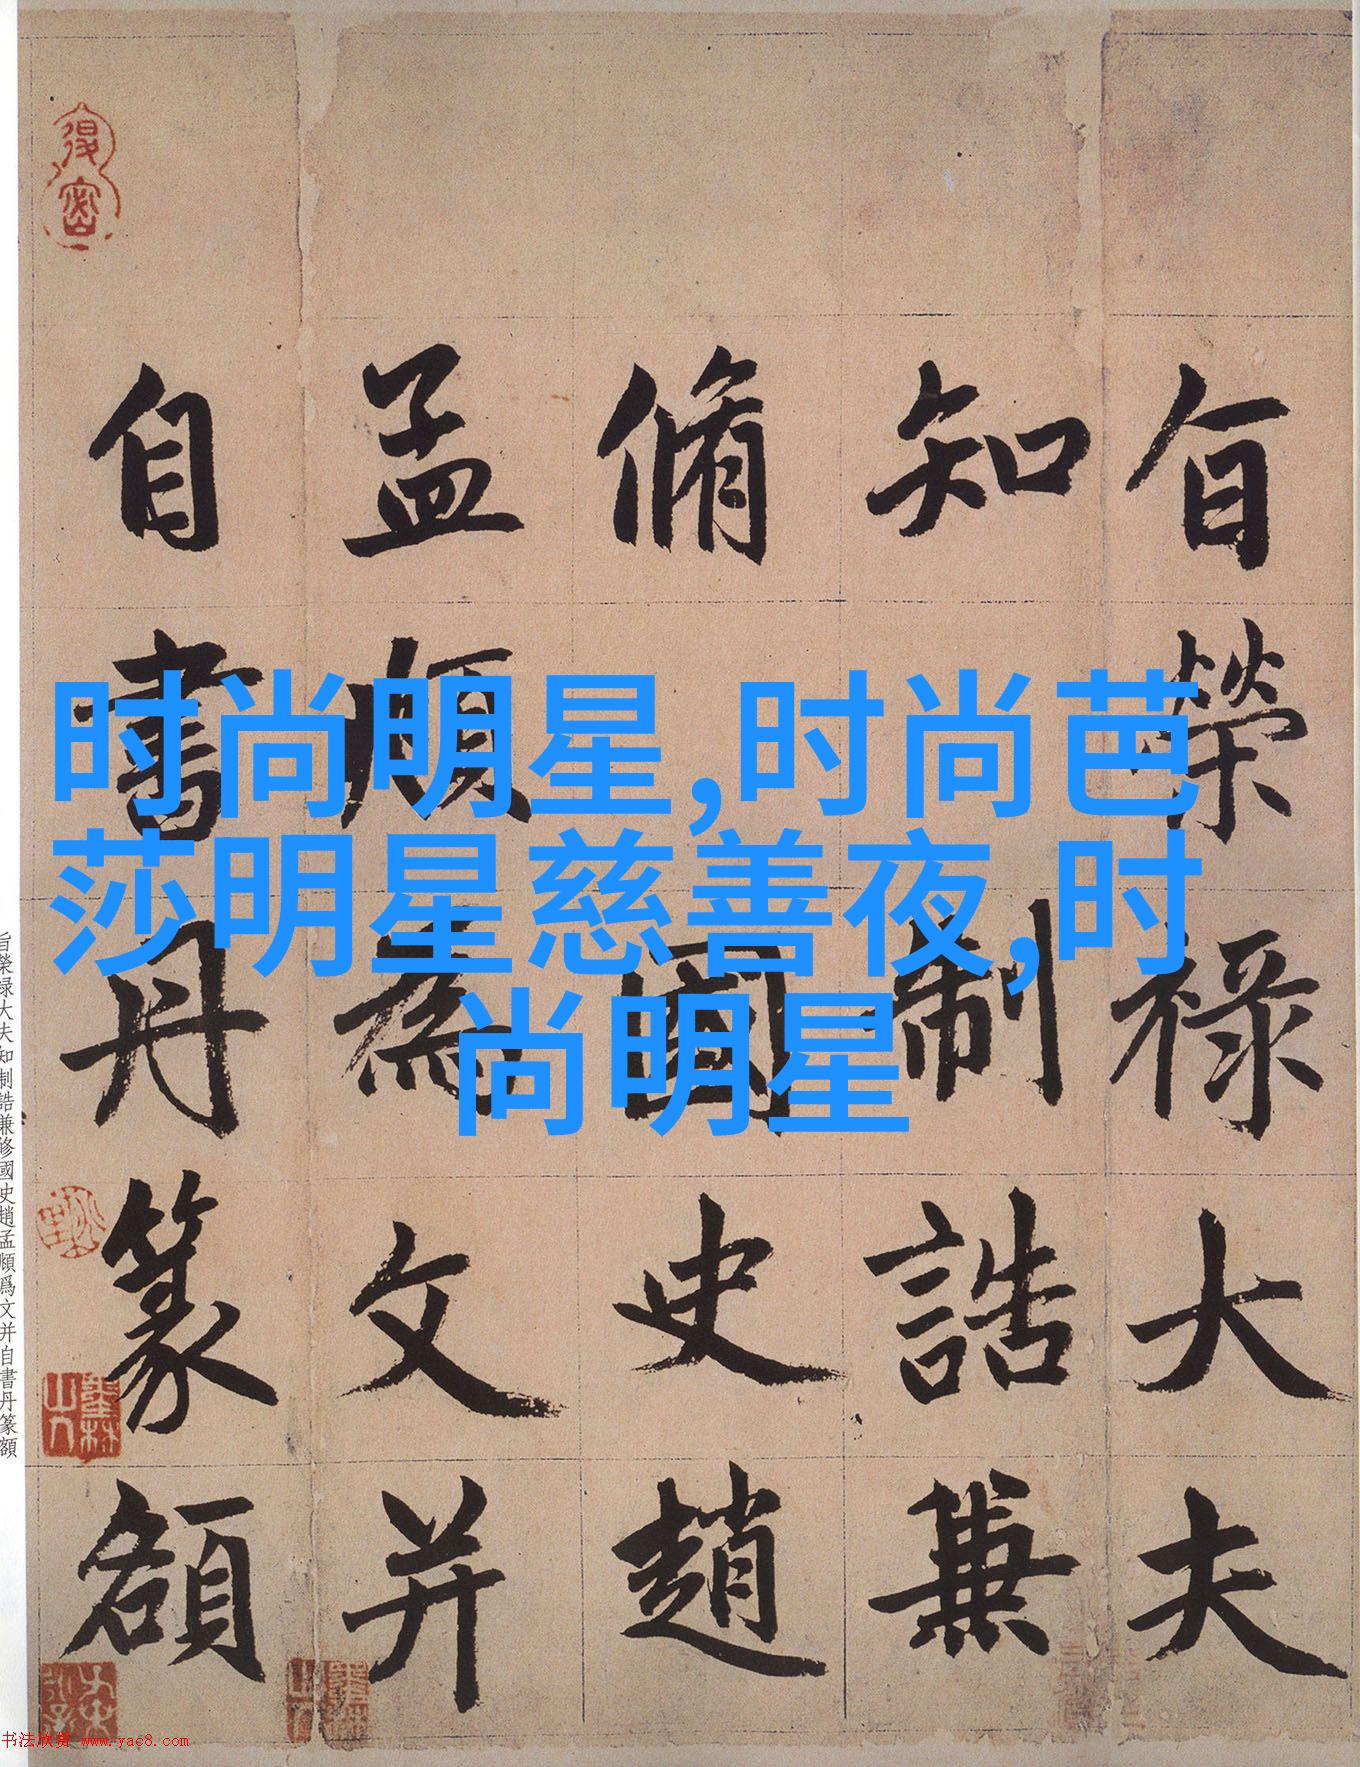 时尚明星,时尚芭
莎明星慈善夜,时
尚明星
旨榮祿大夫
知制誥兼
脩國史趙
孟頫為文并
自書丹篆額
旨榮禄大夫知制誥兼修國史趙孟頫爲文并自書丹篆額
书法欣赏 www.yac8.com